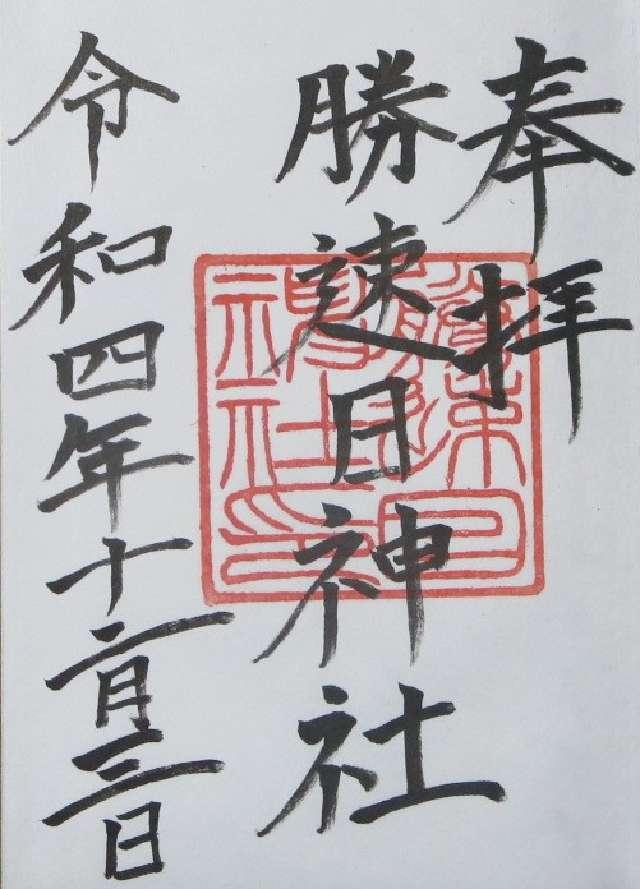 奉拝
勝速日神社
令和四年十二月三日